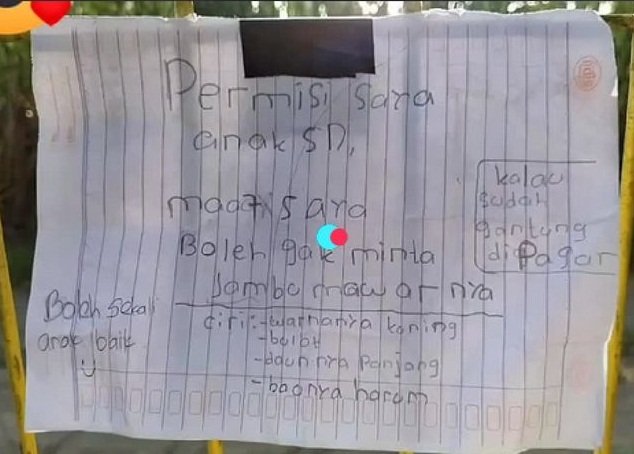 Permisi saya
anak SD,
maaf saya
Boleh gak minta
Jambu mawarnya
ciri:-warnanya kuning
-bulat
-daunnya Panjang
-baonya harom
kalau
sudah
gantung
di Pagar
Boleh sekali
anak baik